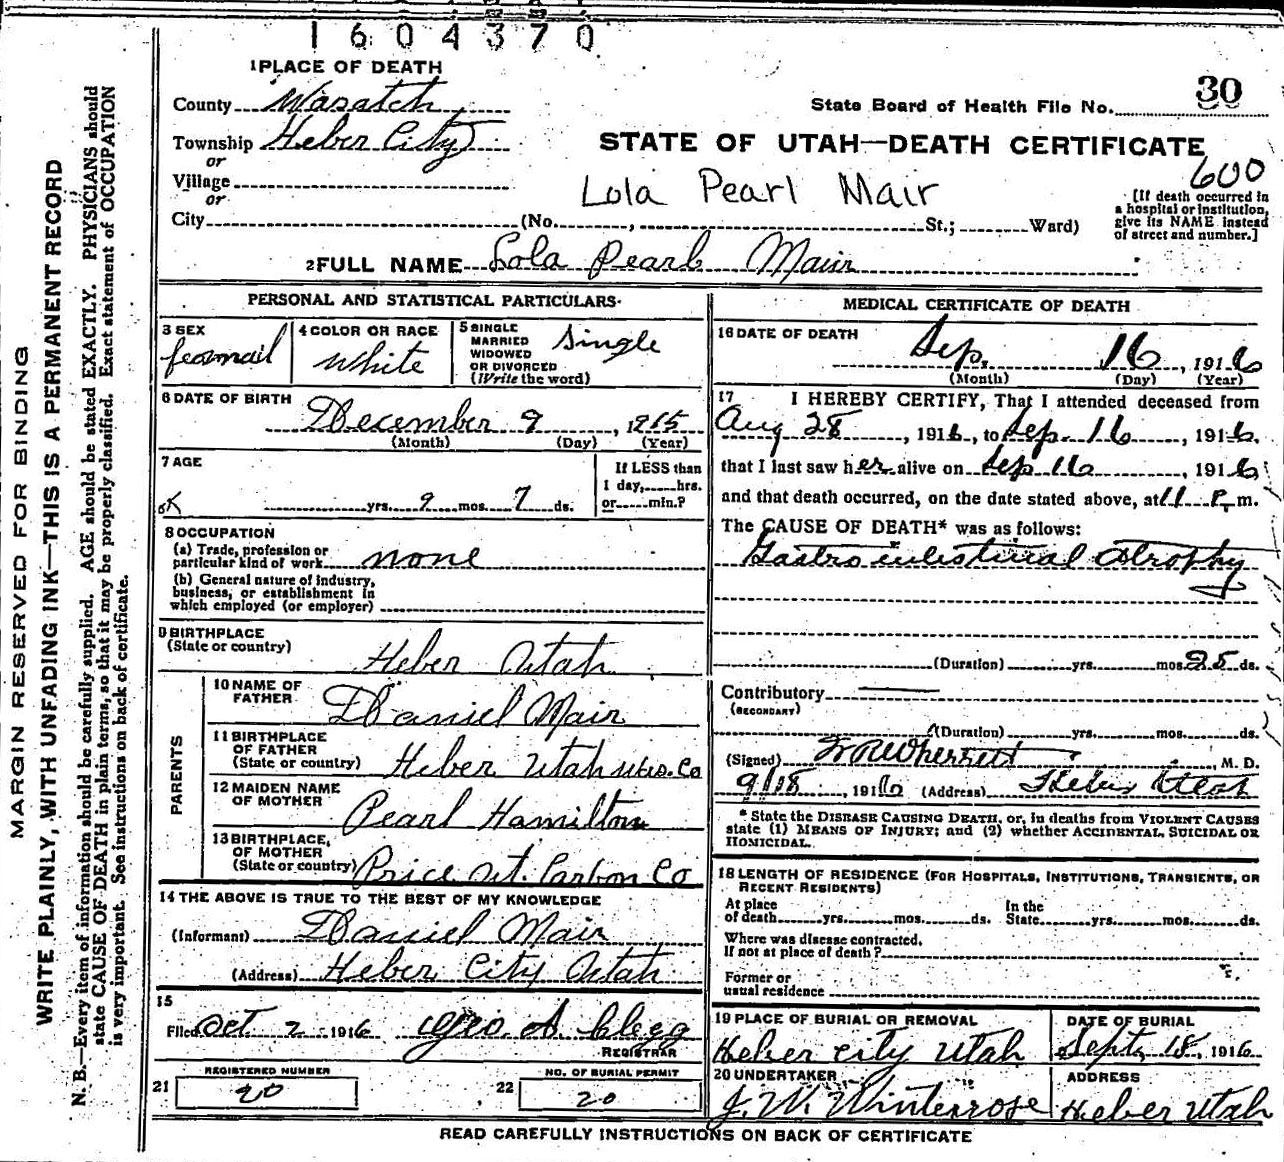 1604370
1 PLACE OF DEATH
County Wasatch
State Board of Health File No. 30
Township Heber City
STATE OF UTAH—DEATH CERTIFICATE
or
Village
Lola Pearl Mair
600
or
City (No. , St.; Ward)
[If death occurred in
a hospital or institution,
give its NAME instead
of street and number.]
2 FULL NAME Lola Pearl Mair
PERSONAL AND STATISTICAL PARTICULARS
3 SEX
feamail
4 COLOR OR RACE
White
5 SINGLE
MARRIED
WIDOWED
OR DIVORCED
(Write the word)
Single
6 DATE OF BIRTH
December 9, 1915
(Month) (Day) (Year)
7 AGE
yrs. 9 mos. 7 ds.
If LESS than
1 day, hrs.
or min.?
8 OCCUPATION
(a) Trade, profession or
particular kind of work none
(b) General nature of industry,
business, or establishment in
which employed (or employer)
9 BIRTHPLACE
(State or country)
Heber Utah
PARENTS
10 NAME OF
FATHER
Daniel Mair
11 BIRTHPLACE
OF FATHER
(State or country) Heber Utah Co
12 MAIDEN NAME
OF MOTHER
Pearl Hamilton
13 BIRTHPLACE,
OF MOTHER
(State or country) Price Ut. Carbon Co
14 THE ABOVE IS TRUE TO THE BEST OF MY KNOWLEDGE
(Informant) Daniel Mair
(Address) Heber City Utah
15
Filed Oct 2 1916 Geo. A. Clegg
REGISTRAR
21 REGISTERED NUMBER
20
22 NO. OF BURIAL PERMIT
20
MEDICAL CERTIFICATE OF DEATH
16 DATE OF DEATH
Sep. 16, 1916
(Month) (Day) (Year)
17 I HEREBY CERTIFY, That I attended deceased from
Aug 28, 1916, to Sep. 16, 1916.
that I last saw her alive on Sep 16, 1916
and that death occurred, on the date stated above, at 11 P. m.
The CAUSE OF DEATH* was as follows:
Gastro intestinal atrophy
(Duration) yrs. mos. 25 ds.
Contributory
(SECONDARY)
(Duration) yrs. mos. ds.
(Signed) Wherritt, M. D.
9/18, 1916 (Address) Heber Utah
* State the DISEASE CAUSING DEATH, or, in deaths from VIOLENT CAUSES
state (1) MEANS OF INJURY; and (2) whether ACCIDENTAL, SUICIDAL OR
HOMICIDAL.
18 LENGTH OF RESIDENCE (FOR HOSPITALS, INSTITUTIONS, TRANSIENTS, OR
RECENT RESIDENTS)
At place
of death yrs. mos. ds.
In the
State yrs. mos. ds.
Where was disease contracted,
If not at place of death?
Former or
usual residence
19 PLACE OF BURIAL OR REMOVAL
Heber City Utah
DATE OF BURIAL
Sept, 18, 1916
20 UNDERTAKER
J. W. Winterrose
ADDRESS
Heber Utah
READ CAREFULLY INSTRUCTIONS ON BACK OF CERTIFICATE
MARGIN RESERVED FOR BINDING
WRITE PLAINLY, WITH UNFADING INK—THIS IS A PERMANENT RECORD
N. B.—Every item of information should be carefully supplied. AGE should be stated EXACTLY. PHYSICIANS should
state CAUSE OF DEATH in plain terms, so that it may be properly classified. Exact statement of OCCUPATION
is very important. See instructions on back of certificate.